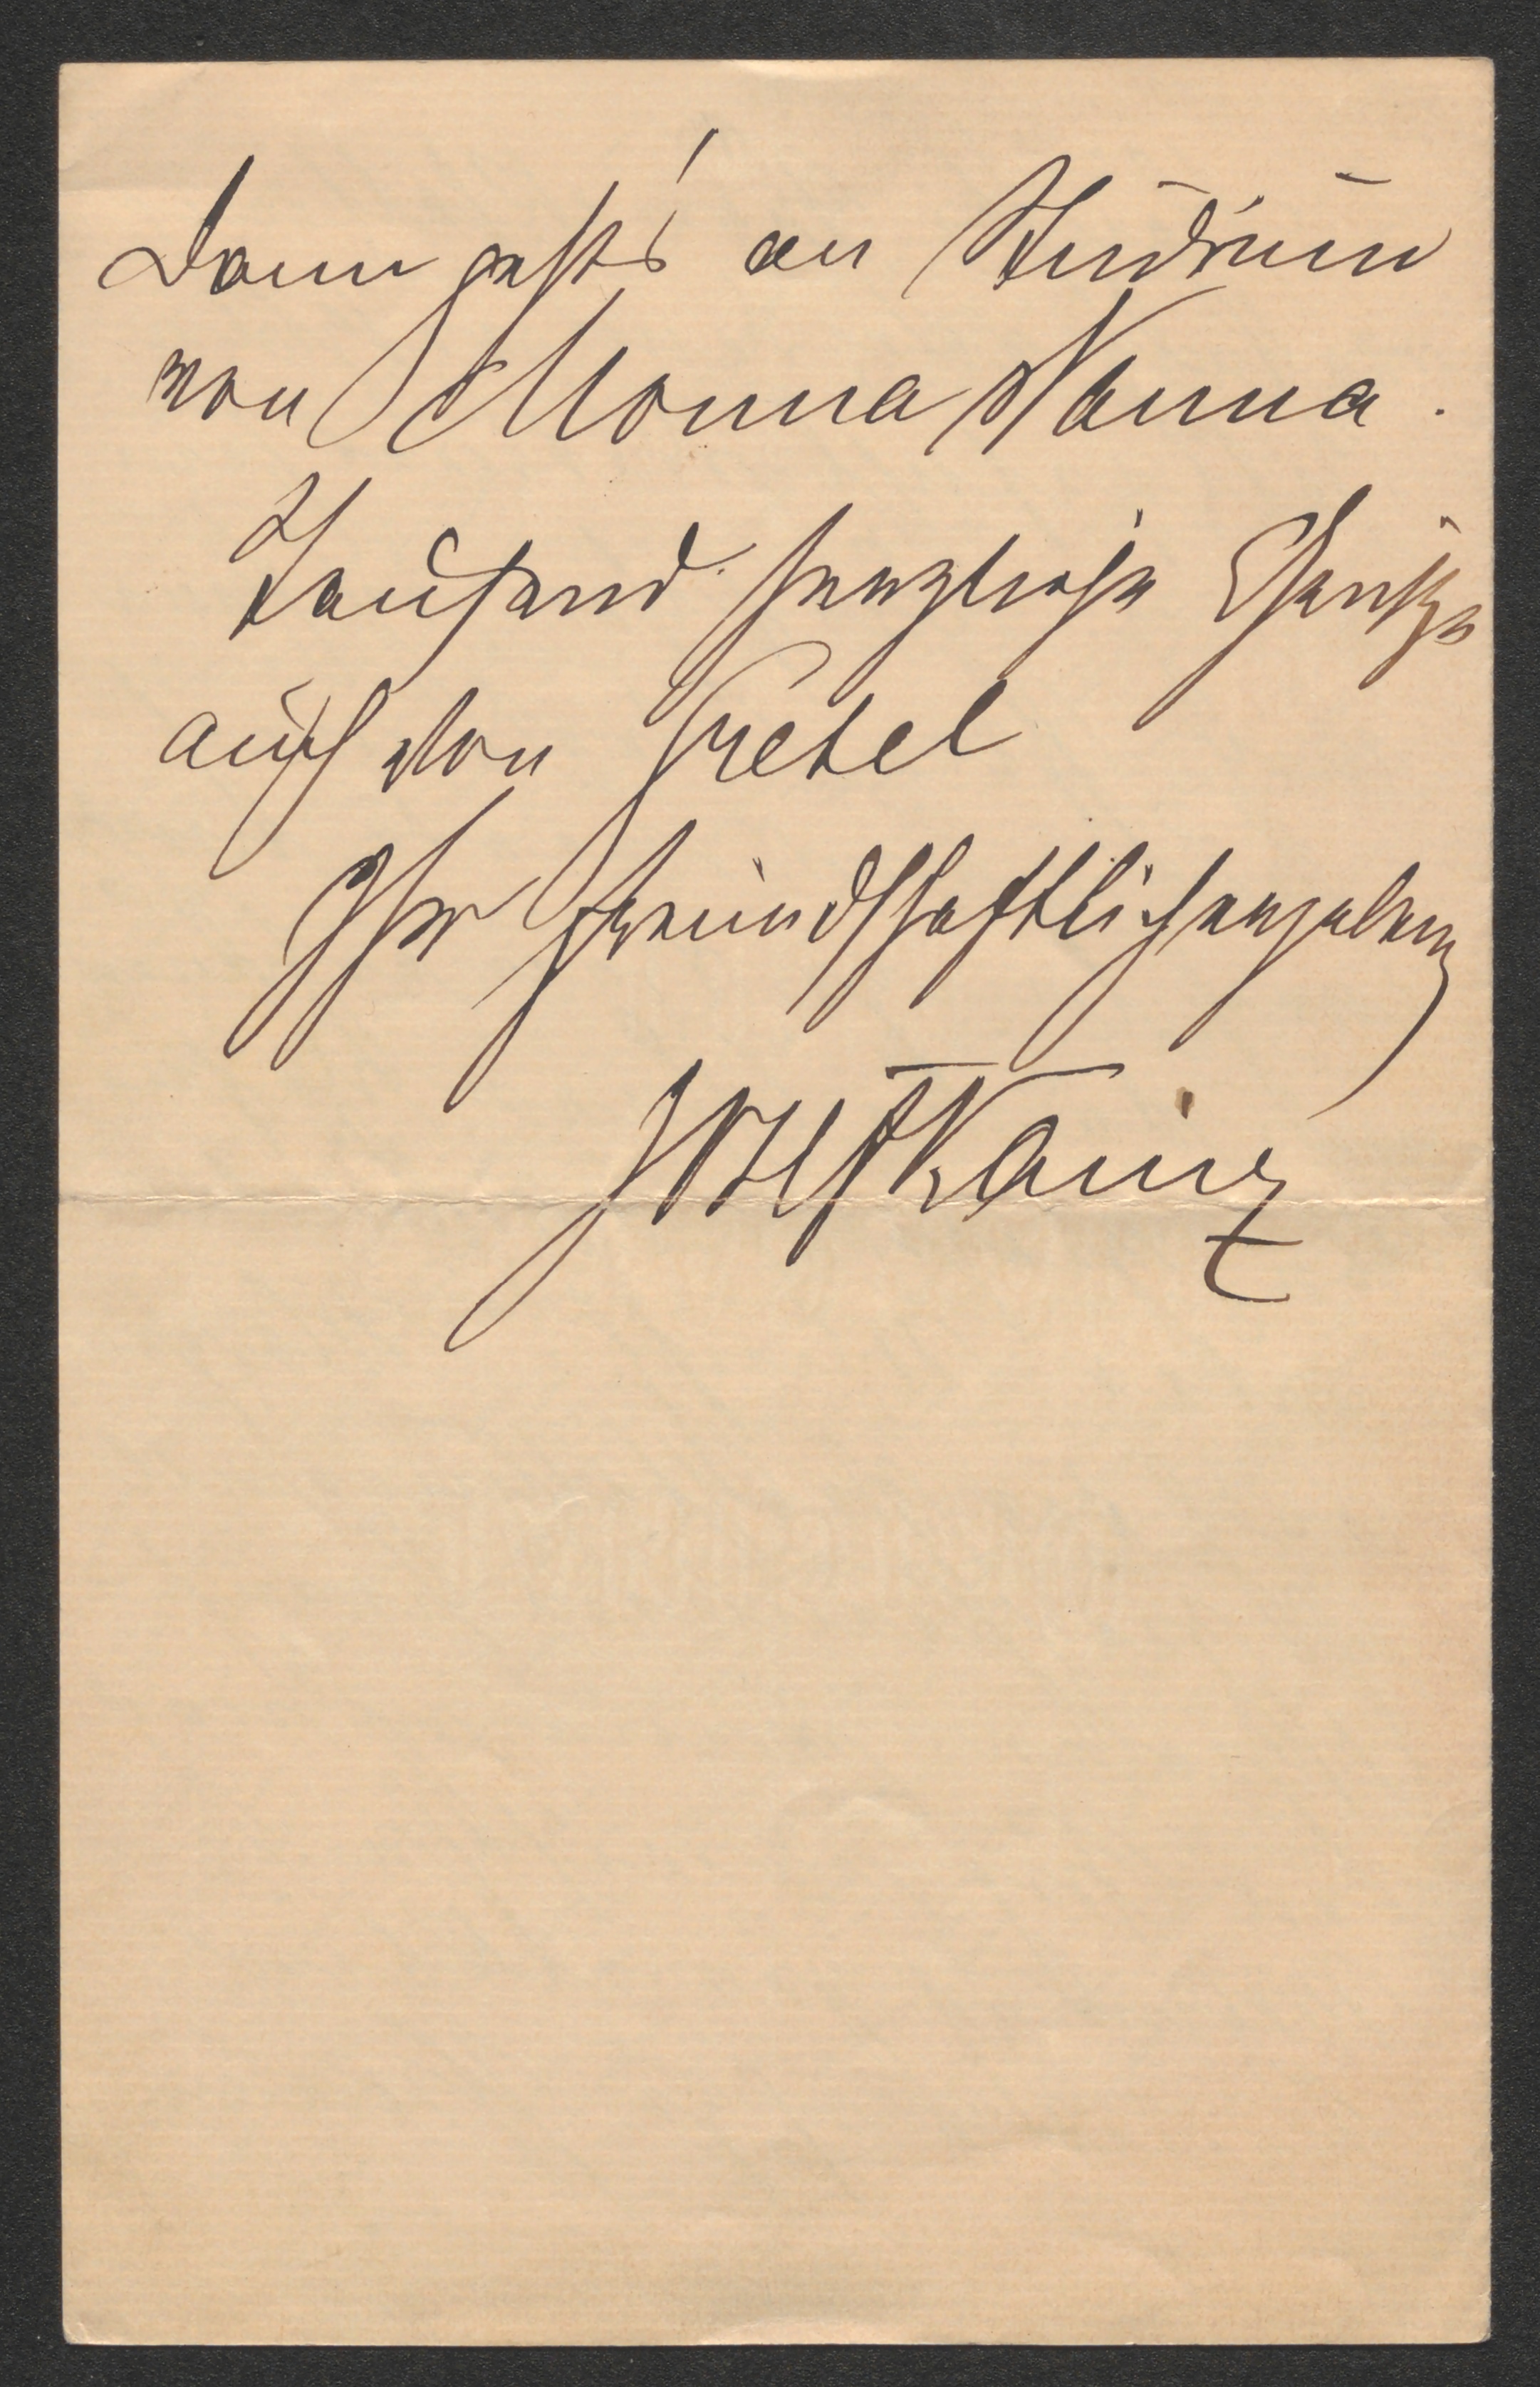 Dann geht's an Studium
von Monna Vanna.
Tausend herzliche Grüße
auch von Gretel
Ihr freundschaftlichergebener
Josef Kainz